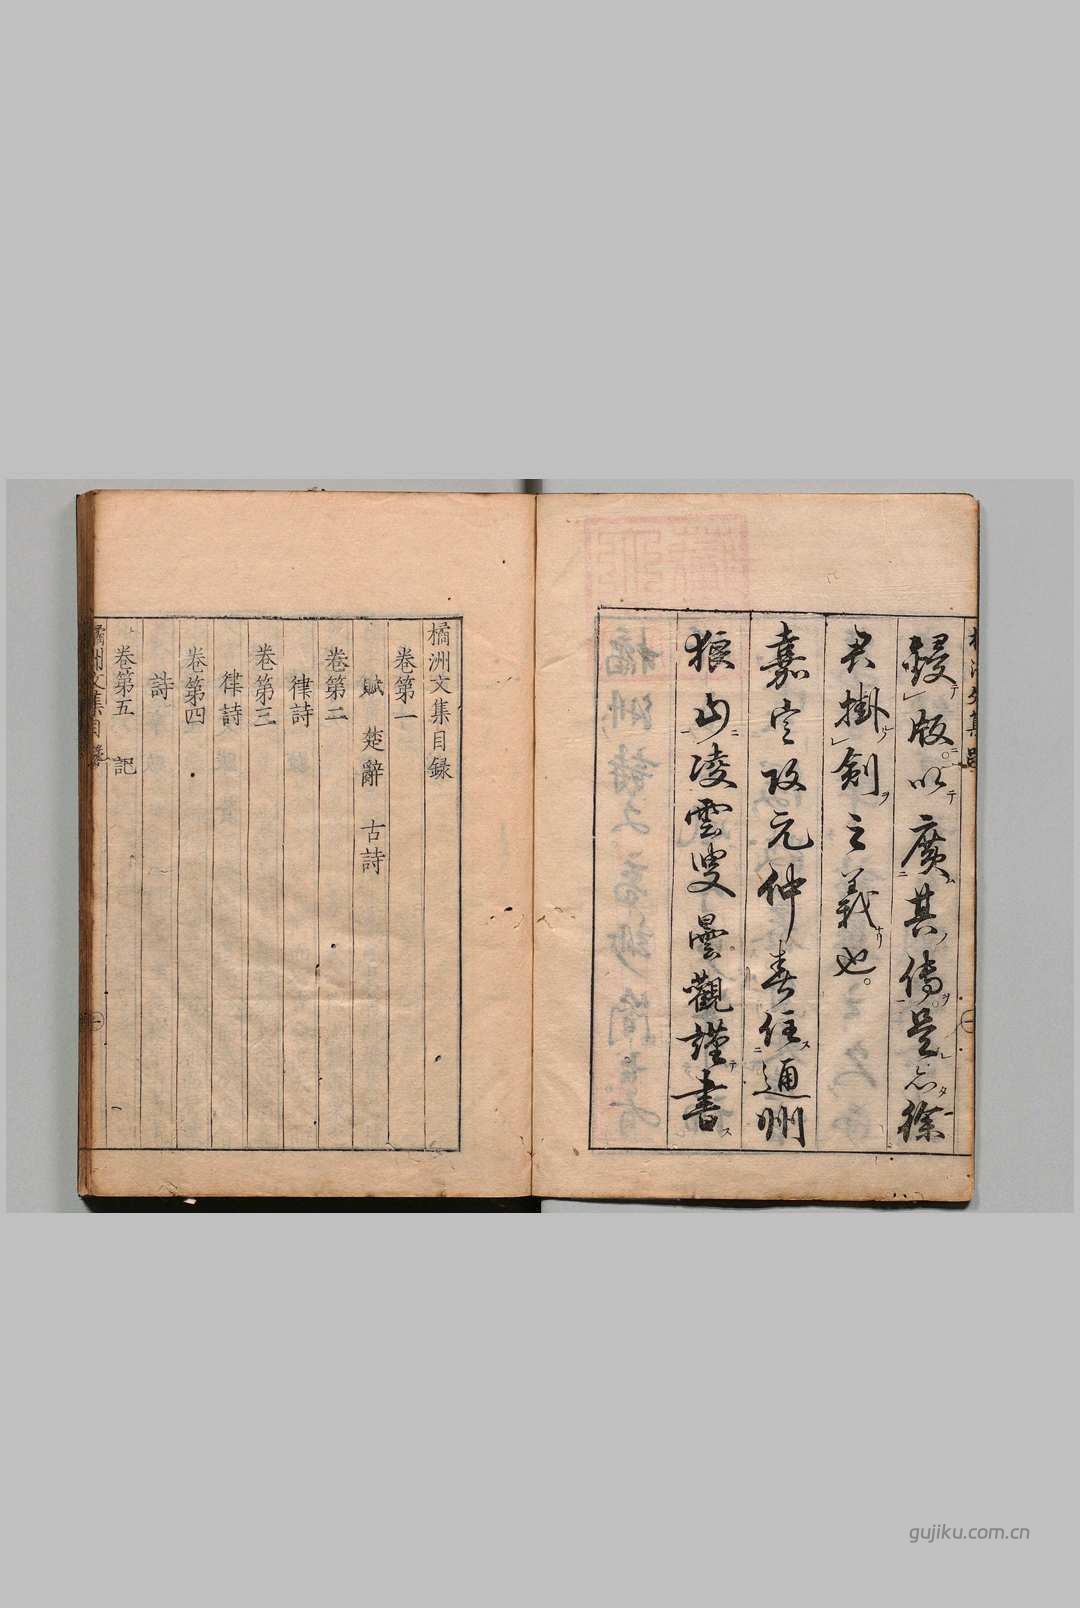 鋟版以廣其傳是亦徐
君掛劍之義也
嘉定改元仲春住通州
狼山凌雲叟曇觀謹書
橘洲文集目録
卷第一
賦 楚辭 古詩
卷第二
律詩
卷第三
律詩
卷第四
詩
卷第五 記
橘洲文集目録
一
gujiku.com.cn